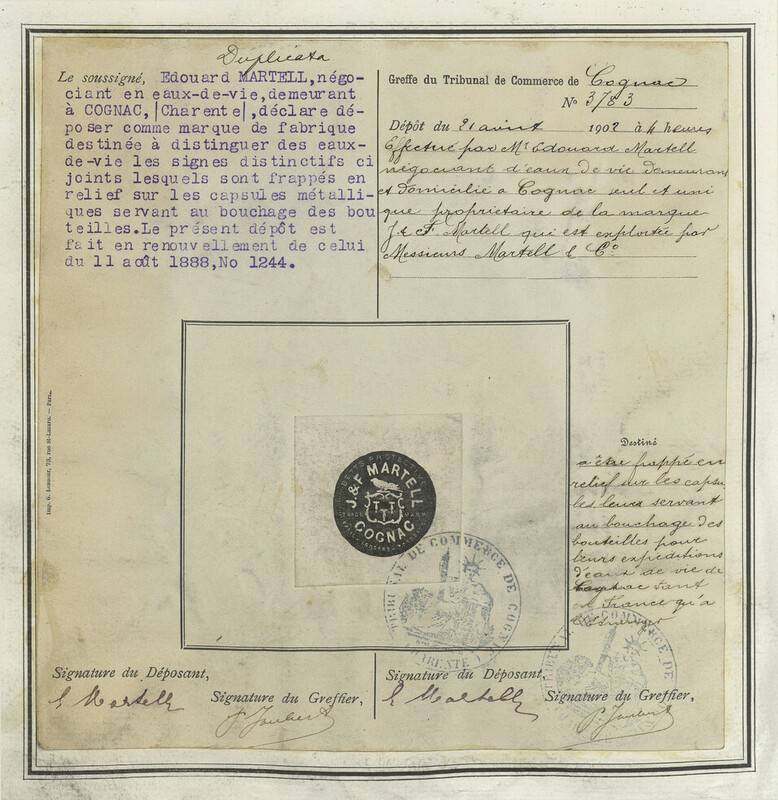 Duplicata
Le soussigné, Edouard MARTELL,négo-
ciant en eaux-de-vie,demeurant
à COGNAC,|Charente|,déclare dé-
poser comme marque de fabrique
destinée à distinguer des eaux-
de-vie les signes distinctifs ci
joints lesquels sont frappés en
relief sur les capsules métalli-
ques servant au bouchage des bou
teilles.Le présent dépôt est
fait en renouvellement de celui
du 11 août 1888,No 1244.
Greffe du Tribunal de Commerce de Cognac
No 3783
Dépôt du 21 avril 1902 à 4 heures
Effectué par Mr Edouard Martell
négociant d'eaux de vie demeurant
et domicilié à Cognac seul et uni
que propriétaire de la marque
J. & F. Martell qui est exploitée par
Messieurs Martell & Co
Imp. G. Lesueur, 73, rue St-Lazare. — Paris.
J & F MARTELL
TRADE MARK
COGNAC
TRIBUNAL DE COMMERCE DE COGNAC
CHARENTE
Destiné
à être frappé en
relief sur les capsu
les leurs servant
au bouchage des
bouteilles pour
leurs expéditions
d'eaux de vie de
Cognac tant
en France qu'à
l'Etranger
TRIBUNAL DE COMMERCE DE
Signature du Déposant,
E Martell
Signature du Greffier,
P. Joubert
Signature du Déposant,
E Martell
Signature du Greffier,
P. Joubert